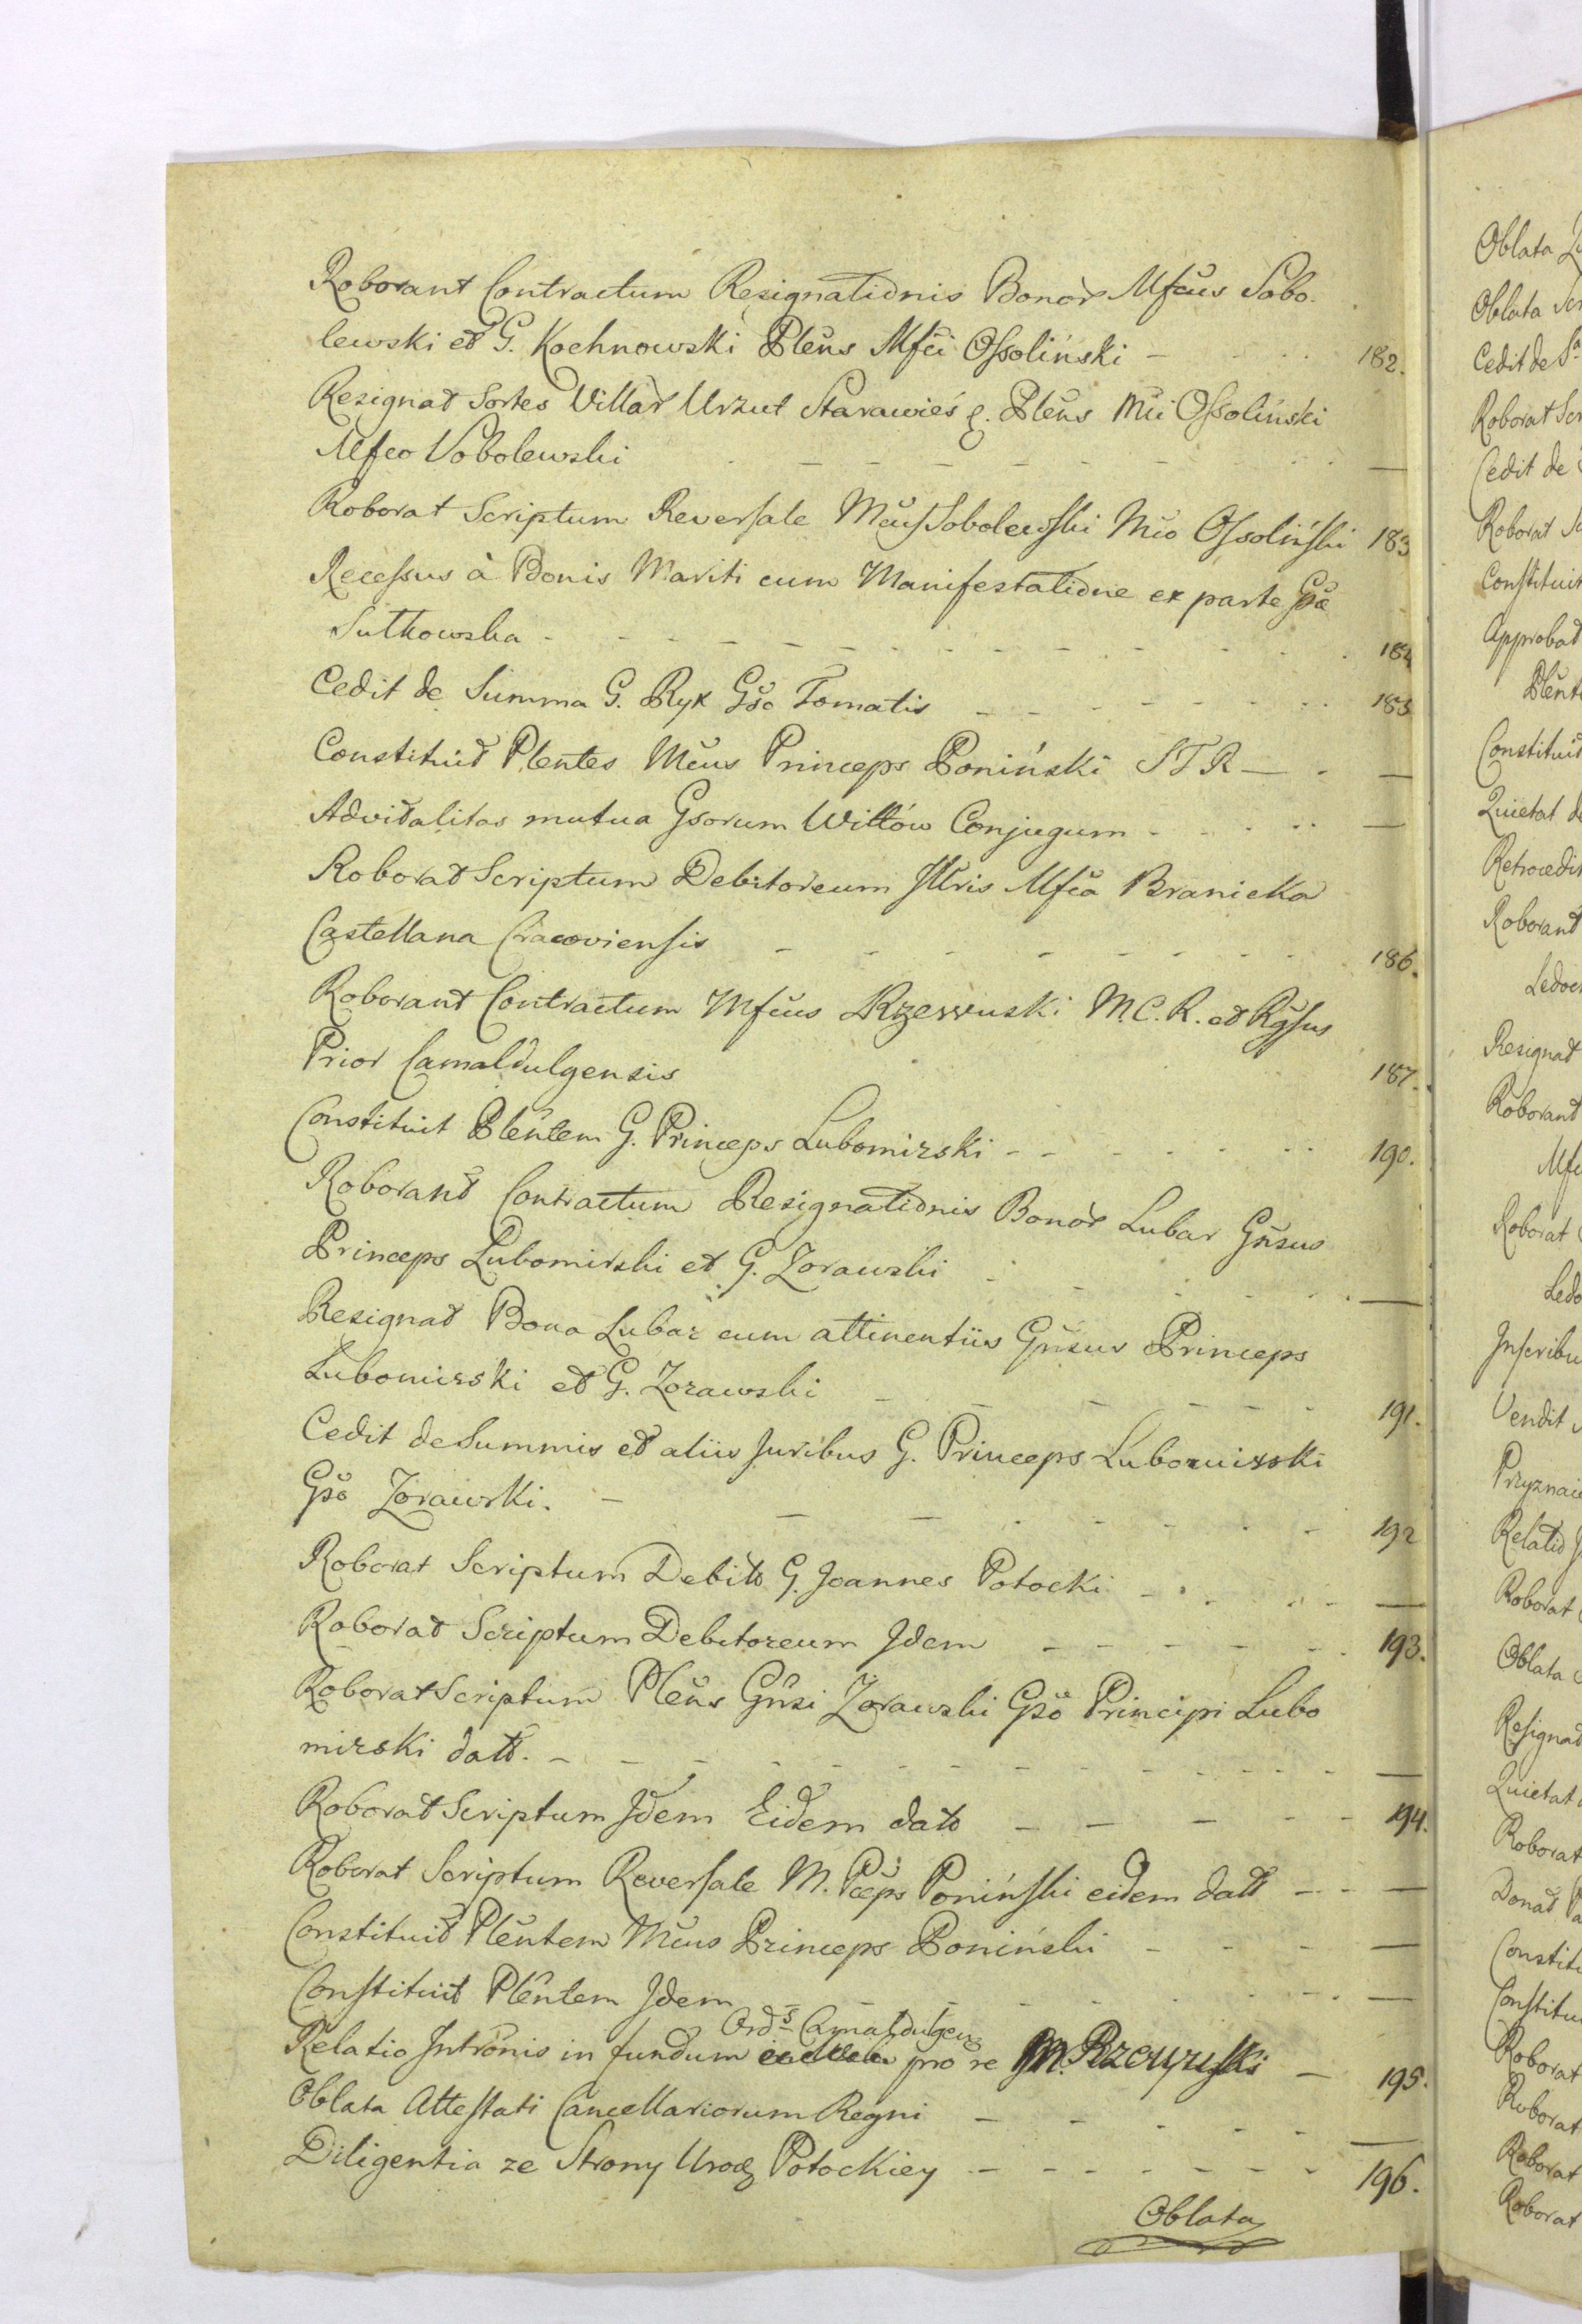 Roborant Contractum Resignationis Bonor Mfcus Sobo-
lewski et G. Kochnowski Plēns Mfci Ossoliński - 182.
Resignat Sortes Villar Urzut Starawieś p. Plēns Mci Ossoliński
Mfco Sobolewski - -
Roborat Scriptum Reversale Mcus Sobolewski Mco Ossoliński 183
Recessus à Bonis Mariti cum Manifestatione ex parte Gsæ
Sutkowska - 184
Cedit de Summa G. Ryx Gso Tomatis - 185
Constituit Plentes Mcus Princeps Poniński S T R - -
Advitalitas mutua Gsorum Wittów Conjugum - -
Roborat Scriptum Debitoreum Illris Mfca Branicka
Castellana Cracoviensis - 186.
Roborant Contractum Mfcus Rzewuski M. C. R. et Rgsus
Prior Camaldulgensis 187.
Constituit Plēntem G. Princeps Lubomirski - 190.
Roborant Contractum Resignationis Bonor Lubar Gnsus
Princeps Lubomirski et G. Zorawski - -
Resignat Bona Lubar cum attinentiis Gnsus Princeps
Lubomirski et G. Zorawski - 191.
Cedit de Summis et aliis Juribus G. Princeps Lubomirski
Gso Zorawski. - 192
Roborat Scriptum Debito G. Joannes Potocki - -
Roborat Scriptum Debitoreum Idem - 193.
Roborat Scriptum Plēns Gnsi Zorawski Gso Principi Lubo
mirski datt. - -
Roborat Scriptum Idem Eidem dato - 194.
Roborat Scriptum Reversale M. Pceps Poniński eidem datt - -
Constituit Plēntem Mcus Princeps Poniński - -
Constituit Plēntem Idem - -
Ords Camaldulgen
Relatio Intronis in fundum pro re M. Rzewuski - 195.
Oblata Attestati Cancellariorum Regni - -
Diligentia ze Strony Urodz Potockiey - 196.
Oblata
Oblata
Oblata
Cedit de
Roborat
Cedit de
Roborat
Constituit
Approbat
Plēnt
Constituit
Quietat
Retrocedit
Roborant
Resignat
Roborant
Mfc
Roborat
Vendit
Relatio
Roborat
Oblata
Resignat
Quietat
Roborat
Donat
Roborat
Roborat
Roborat
Roborat